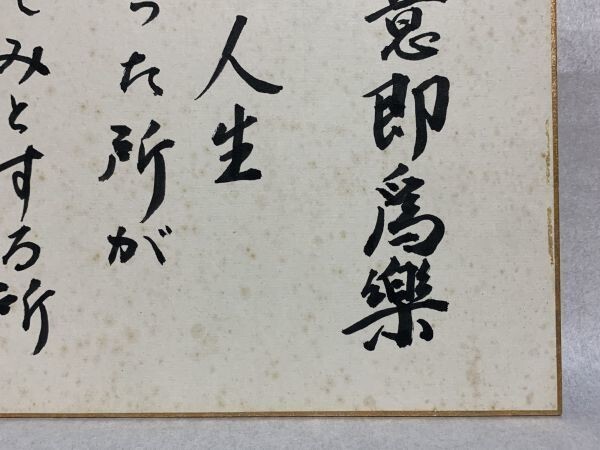 意即為樂
人生
った所が
しみとする所